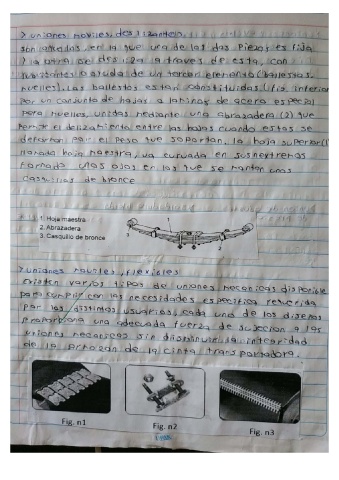 > uniones moviles, deslizantes
son aquellas, en la que una de las dos piezas es fija
y la otra se desliza a traves de esta, con
o ayuda de un tercer elemento (ballestas,
muelles). Las ballestas estan constituidas
por un conjunto de hojas a laminas de acero especial
para muelles, unidas mediante una abrazadera (2) que
permite el delizamiento entre las hojas cuando estas se
deforman por el peso que soportan. la hoja superior (1
llamada hoja maestra, va curvada en sus extremos
formado unos ojos en los que se montan unos
casquillos de bronce
1. Hoja maestra
2. Abrazadera
3. Casquillo de bronce
1
2
3
> uniones moviles, flexibles
existen varios tipos de uniones mecanicas disponible
para cumplir con las necesidades especifica
por los distintos usuarios, cada uno de los diseños
proporciona una adecuada fuerza de sujecion a las
uniones mecanicas sin disminuir la integridad
de la de la cinta transportadora.
Fig. n1
Fig. n2
Fig. n3